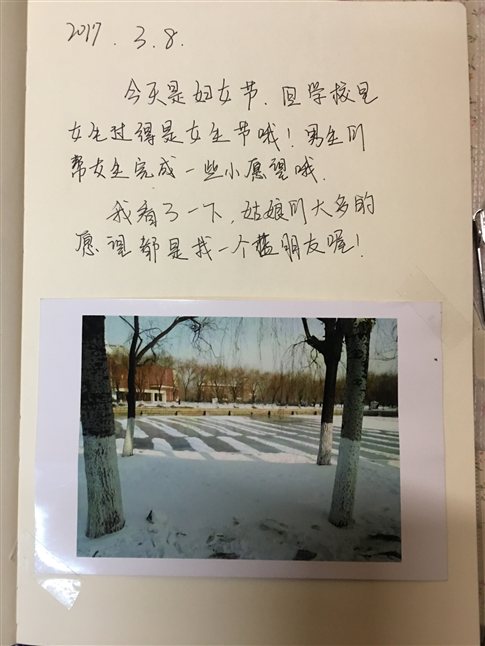 2017.3.8.
今天是妇女节.但学校里
女生过得是女生节哦!男生们
帮女生完成一些小愿望哦.
我看了一下,姑娘们大多的
愿望都是找一个蓝朋友喔!